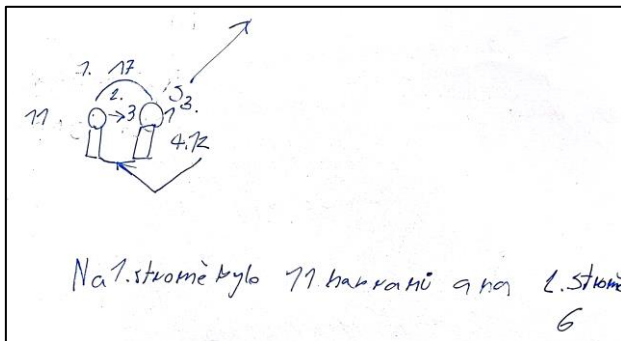 1. 17
2.
11. →3 5 3.
1
4.12
Na 1. stromě bylo 11 havranů a na 2. stromě
6